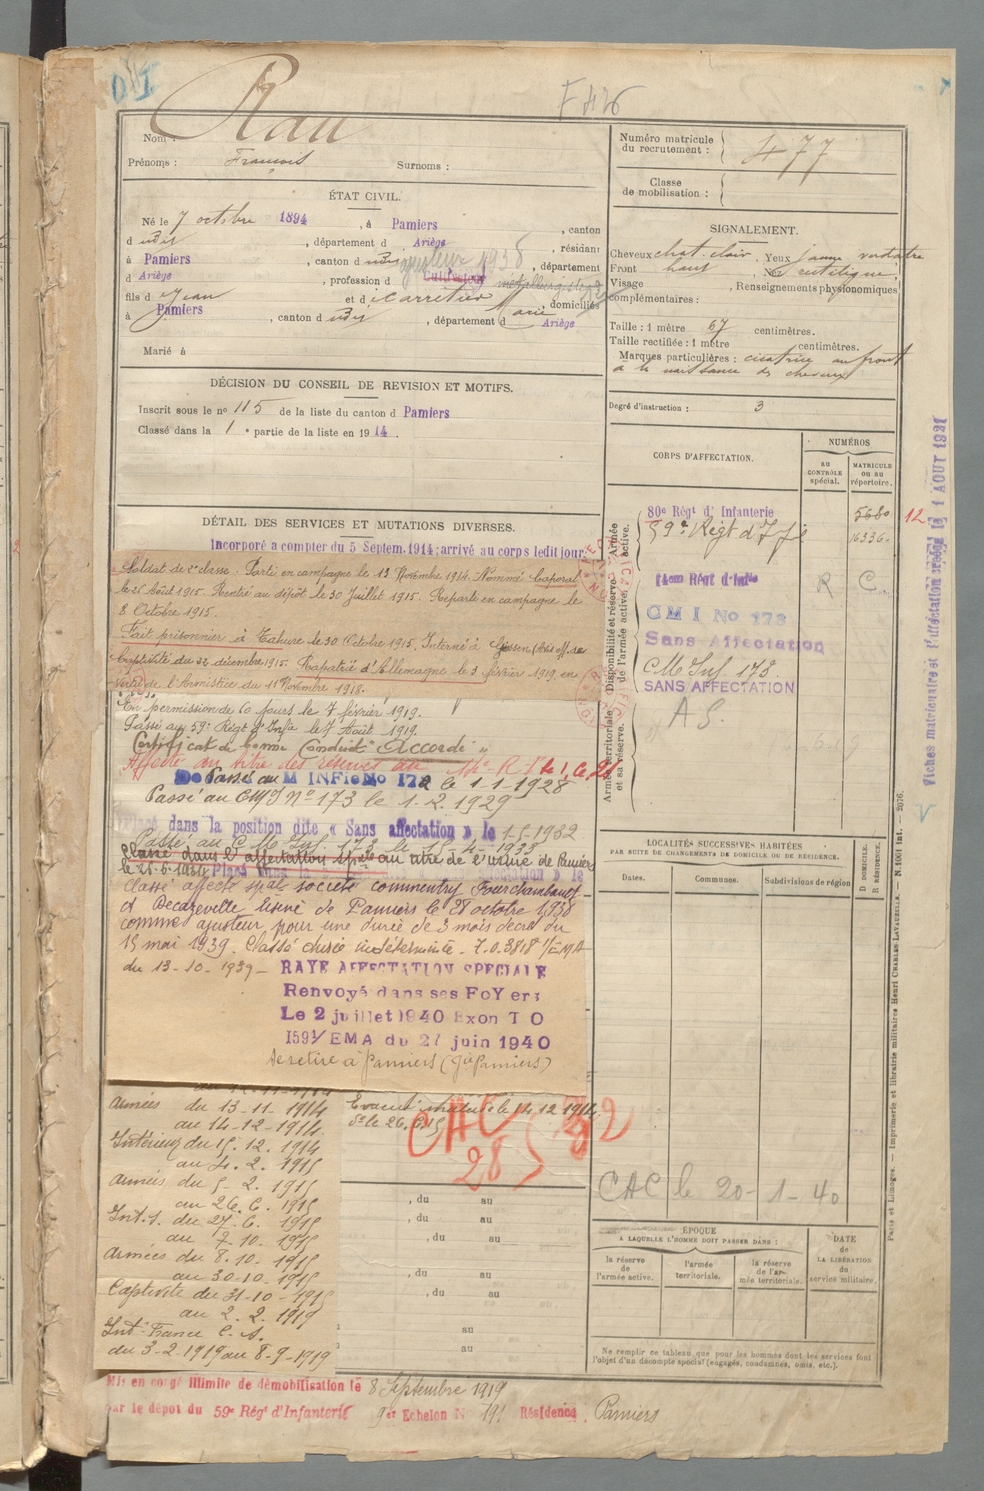 Rau
F 426
Nom :
Prénoms : François Surnoms :
ÉTAT CIVIL.
Né le 7 octobre 1894, à Pamiers, canton
d udit, département d Ariège, résidant
à Pamiers, canton d udit, département
d Ariège, profession d Cultivateur ajusteur 1938 métallurgiste
fils d Jean et d Carretier Marie, domiciliés
à Pamiers, canton d udit, département d Ariège
Marié à
DÉCISION DU CONSEIL DE REVISION ET MOTIFS.
Inscrit sous le no 115 de la liste du canton d Pamiers
Classé dans la 1e partie de la liste en 1914.
DÉTAIL DES SERVICES ET MUTATIONS DIVERSES.
Incorporé a compter du 5 Septem. 1914; arrivé au corps ledit jour;
Soldat de 2e classe. Parti en campagne le 13 Novembre 1914. Nommé Caporal
le 26 Août 1915. Rentré au dépôt le 30 Juillet 1915. Reparti en campagne le
8 Octobre 1915.
Fait prisonnier à Tahure le 30 Octobre 1915. Interné à Giessen
Captivité du 31 décembre 1915. Rapatrié d'Allemagne le 3 février 1919, en
vertu de l'Armistice du 11 Novembre 1918.
En permission de 60 jours le 7 février 1919.
Passé au 59e Régt d'Infie le 7 Août 1919.
Certificat de bonne Conduite "Accordé"
Affecté au titre des réserves au 14e R.I
Passé au C M INFie No 172 le 1-1-1928
Passé au CMI No 173 le 1.2.1929
Placé dans la position dite « Sans affectation » le 1-5-1932
Passé au C M Inf 173 le 15-4-1933
Classé dans l'affectation spale au titre de l'usine de Pamiers
le 21-6-1934 Placé dans la position dite sans affectation » le
Classé affecté spal société Commentry Fourchambault
et Decazeville Usine de Pamiers le 28 octobre 1938
comme ajusteur, pour une durée de 3 mois décret du
15 mai 1939. Classé durée indéterminée. T.O. 3818 1/EMA
du 13-10-1939 - RAYE AFFECTATION SPECIALE
Renvoyé dans ses FoYers
Le 2 juillet 1940 Exon T O
1591/EMA du 27 juin 1940
Se retire à Pamiers (Gie Pamiers)
Armées du 13-11-1914
au 14-12-1914
Intérieur du 15.12.1914
au 4.2.1915
Armées du 5-2.1915
au 26.6.1915
Int. du 27.6.1915
au 7.10.1915
Armées du 8.10.1915
au 30-10-1915
Captivité du 31-10-1915
au 2.2.1919
Int. France C.S.
du 3-2-1919 au 8-9-1919
Evacué malade le 14.12.1914.
CAC
28
, du au
, du au
, du au
, du au
, du au
au
au
Mis en congé illimité de démobilisation le 8 Septembre 1919
par le dépôt du 59e Régt d'Infanterie 9er Echelon No 791 Résidence, Pamiers
Numéro matricule
du recrutement : 477
Classe
de mobilisation :
SIGNALEMENT.
Cheveux chat. clair, Yeux jaune verdatre
Front haut, Nez rectiligne,
Visage , Renseignements physionomiques
complémentaires :
Taille : 1 mètre 67 centimètres.
Taille rectifiée : 1 mètre centimètres.
Marques particulières : cicatrice au front
à la naissance des cheveux
Degré d'instruction : 3
CORPS D'AFFECTATION.
NUMÉROS
AU CONTRÔLE spécial.
MATRICULE ou au répertoire.
Armée active.
80e Régt d'Infanterie 5680 12
59e Régt d'Infie 16336
Disponibilité et réserve de l'armée active.
14em Régt d'Infie R C
CMI No 173
Sans Affectation
CM Inf 173.
SANS AFFECTATION
Armée territoriale et sa réserve.
A S.
Fiches matriculaire et d'affectation reçue le 1 AOUT 1921
LOCALITÉS SUCCESSIVES HABITÉES
PAR SUITE DE CHANGEMENTS DE DOMICILE OU DE RÉSIDENCE.
Dates. Communes. Subdivisions de région D DOMICILE. R RÉSIDENCE.
CAC le 20-1-40
ÉPOQUE
A LAQUELLE L'HOMME DOIT PASSER DANS :
la réserve de l'armée active. l'armée territoriale. la réserve de l'armée territoriale.
DATE DE LA LIBÉRATION du service militaire.
Ne remplir ce tableau que pour les hommes dont les services font
l'objet d'un décompte spécial (engagés, condamnés, omis, etc.).
Paris et Limoges. — Imprimerie et librairie militaires Henri CHARLES-LAVAUZELLE. — N. 1061 int. — 2076.